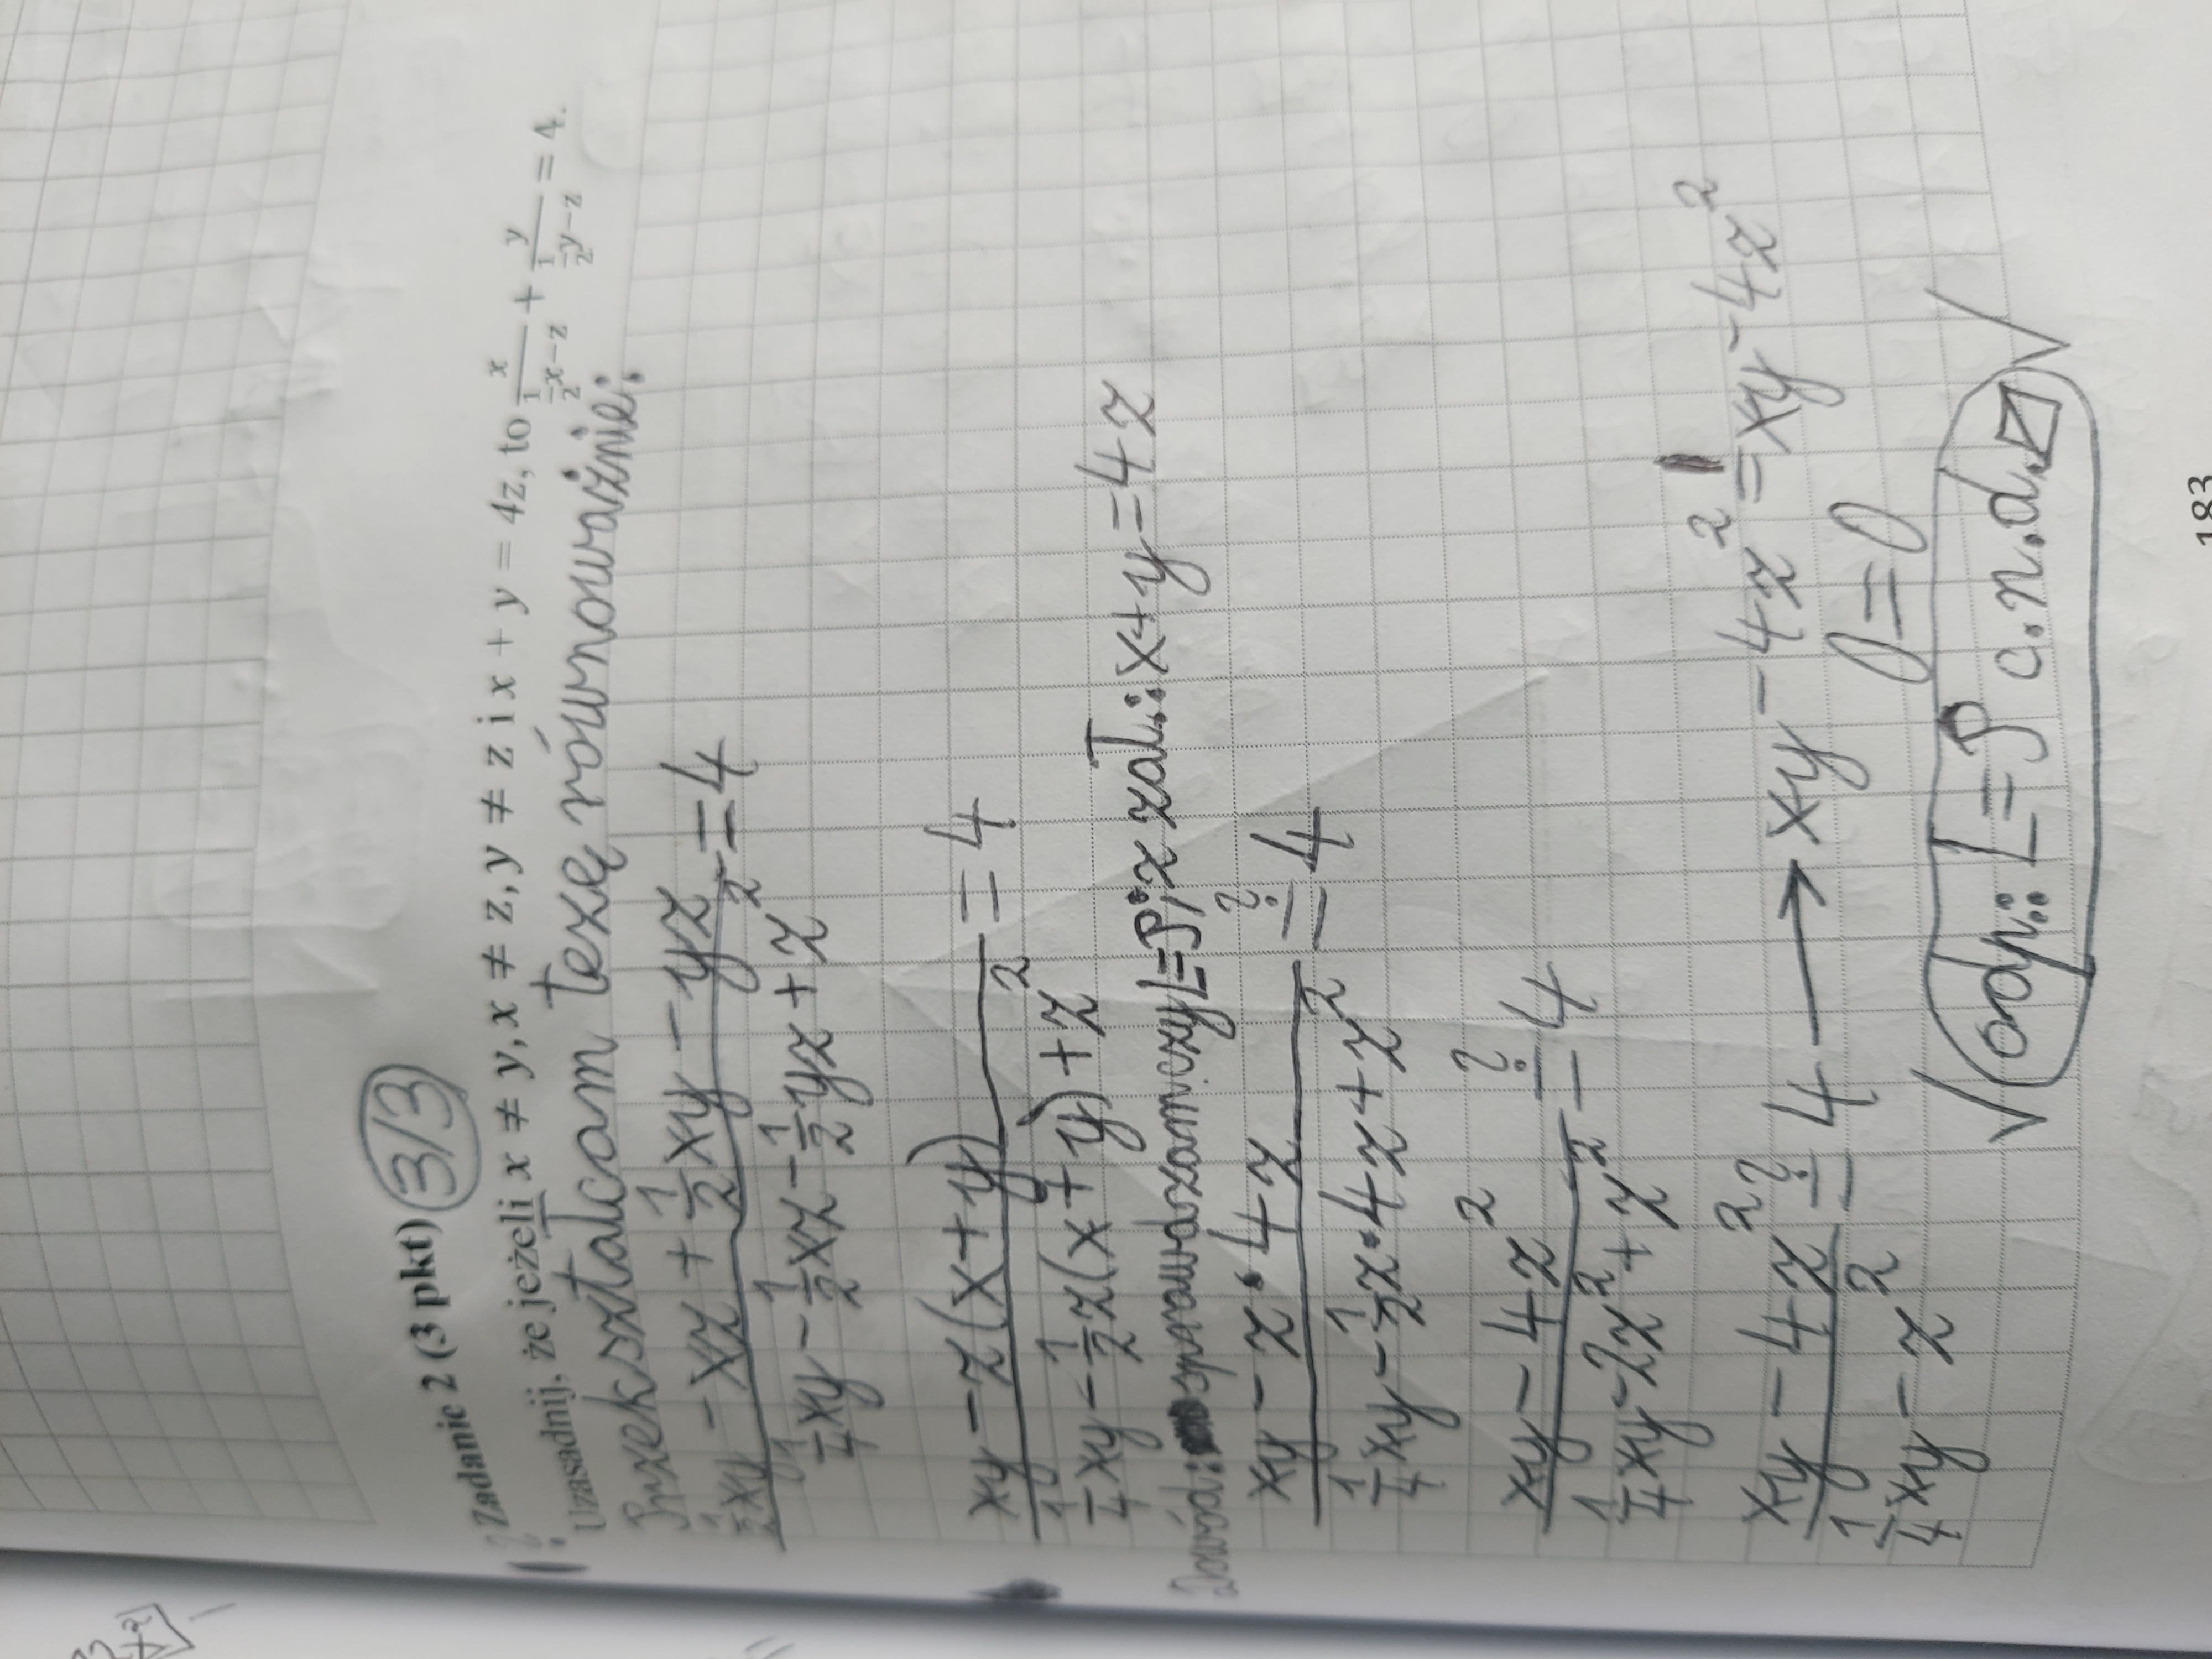 Zadanie 2 (3 pkt) 3/3
Uzasadnij, że jeżeli x ≠ y, x ≠ z, y ≠ z i x + y = 4z, to x/(½x−z) + y/(½y−z) = 4.
Przekształcam tezę równoważnie:
(½xy − xz + ½xy − yz)/(¼xy − ½xz − ½yz + z²) = 4
(xy − z(x+y))/(¼xy − ½z(x+y) + z²) = 4
Dowód: sprawdzam czy L=P; z zał.: x+y=4z
(xy − z•4z)/(¼xy − ½z•4z + z²) ≟ 4
(xy − 4z²)/(¼xy − 2z² + z²) ≟ 4
(xy − 4z²)/(¼xy − z²) ≟ 4 → xy − 4z² = xy − 4z²
0 = 0
√ odp.: L=P c.n.d. √
183